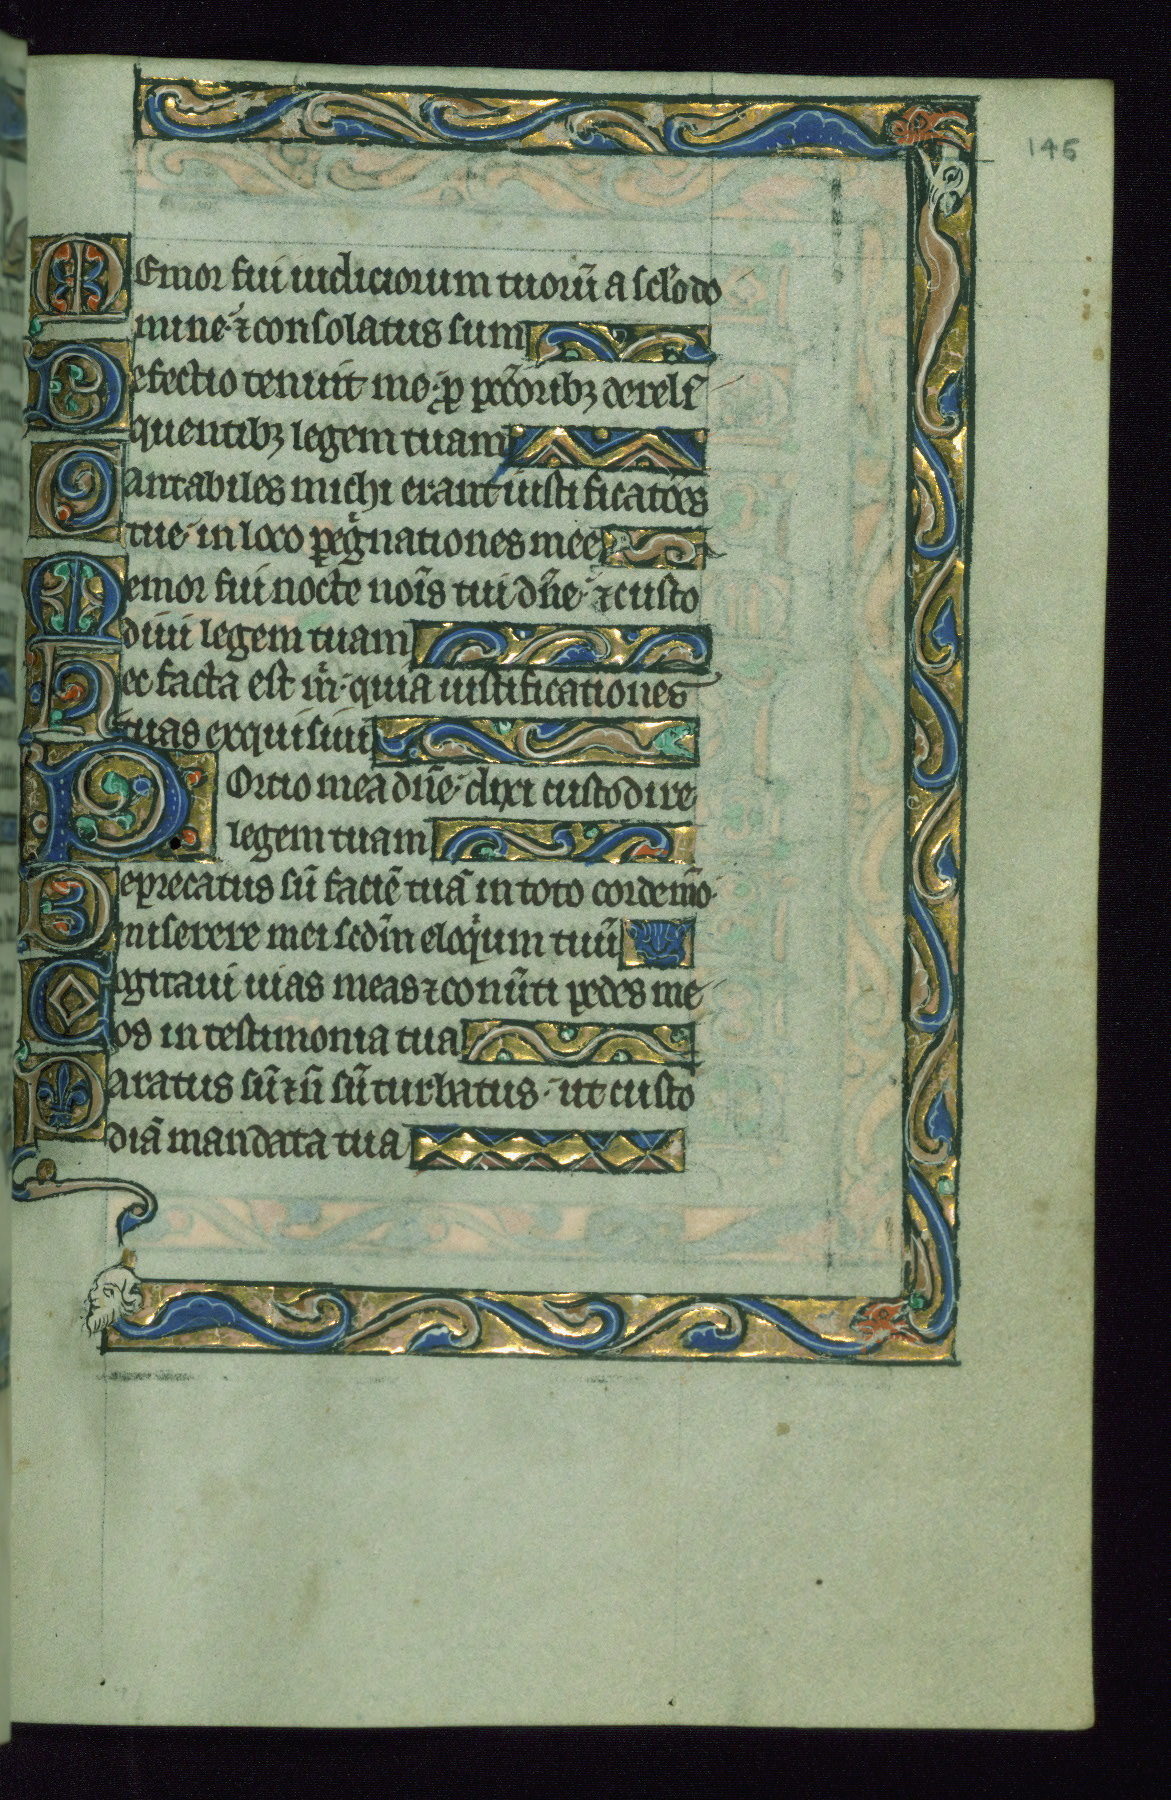 145
Memor fui iudiciorum tuorū a sclo do
mine· ⁊ consolatus sum
Defectio tenuit me· ꝓ pctoribꝫ dereli
quentibꝫ legem tuam
Cantabiles michi erant iustificatōes
tue· in loco pegnationes mee
Memor fui nocte nois tui dn̄e· ⁊ custo
diui legem tuam
Hec facta est m· quia iustificationes
tuas exquisiui
Portio mea dn̄e· dixi custodire
legem tuam
Deprecatus sū faciē tuā in toto corde mō·
miserere mei scdm eloqium tuū
Cogitaui uias meas ⁊ conūti pedes me
os in testimonia tua
Paratus sū ⁊ n̄ sū turbatus· ut custo
diā mandata tua